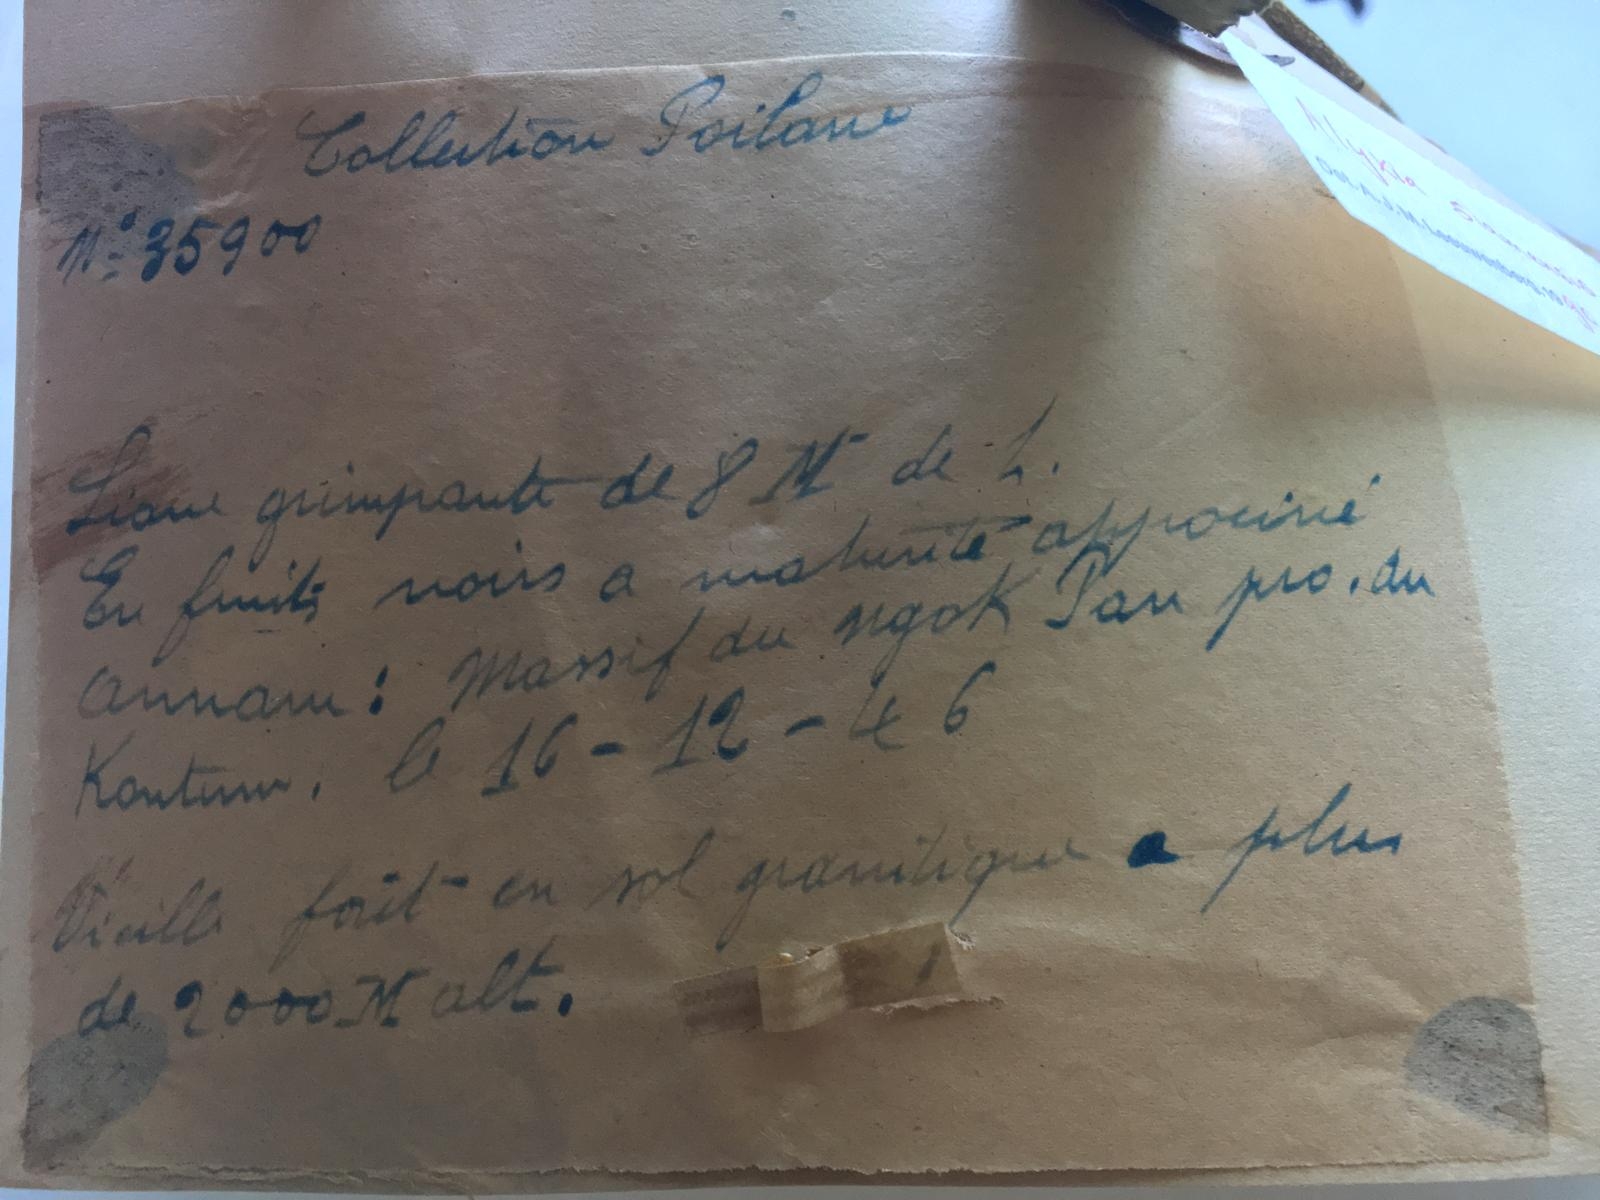 Collection Poilane
N° 35900
Liane grimpante de 8 M de L.
En fruits noirs a maturité appociné
Annam: Massif du Ngok Pan pro. du
Kontum. le 16-12-46
Vieille forêt en sol granitique a plus
de 2000 M alt.
Alyxia siamensis
Det. A.J.M. Leeuwenberg, 19